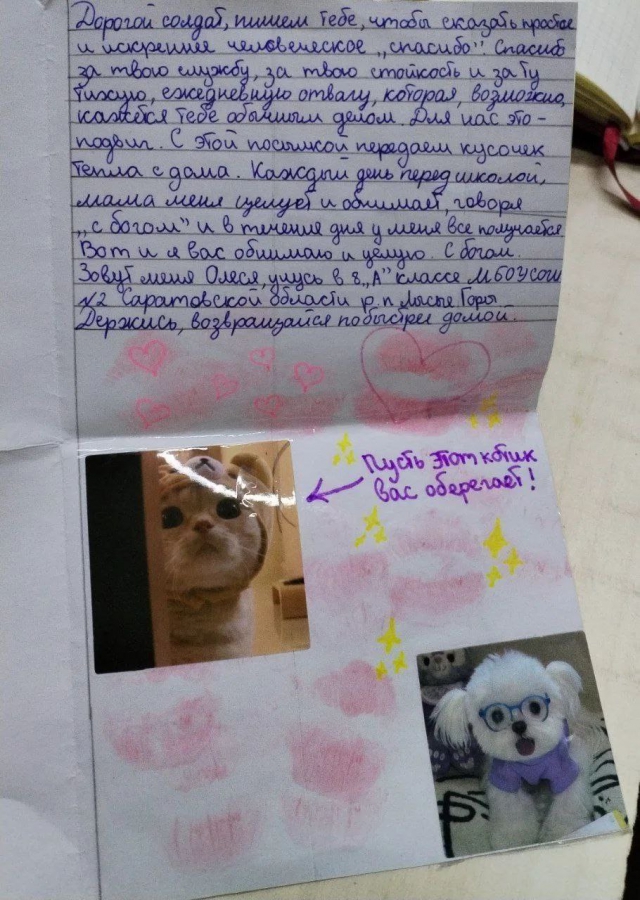 Дорогой солдат, пишем тебе, чтобы сказать простое
и искреннее человеческое „спасибо". Спасибо
за твою службу, за твою стойкость и за ту
тихую, ежедневную отвагу, которая, возможно,
кажется тебе обычным делом. Для нас это -
подвиг. С этой посылкой передаем кусочек
тепла с дома. Каждый день перед школой,
мама меня целует и обнимает, говоря
„с богом" и в течение дня у меня все получается
Вот и я вас обнимаю и целую. С богом.
Зовут меня Олеся, учусь в 8 „А" классе МБОУСОШ
№2 Саратовской области р.п Лысые Горы.
Держись, возвращайся побыстрее домой.
Пусть этот котик
вас оберегает!